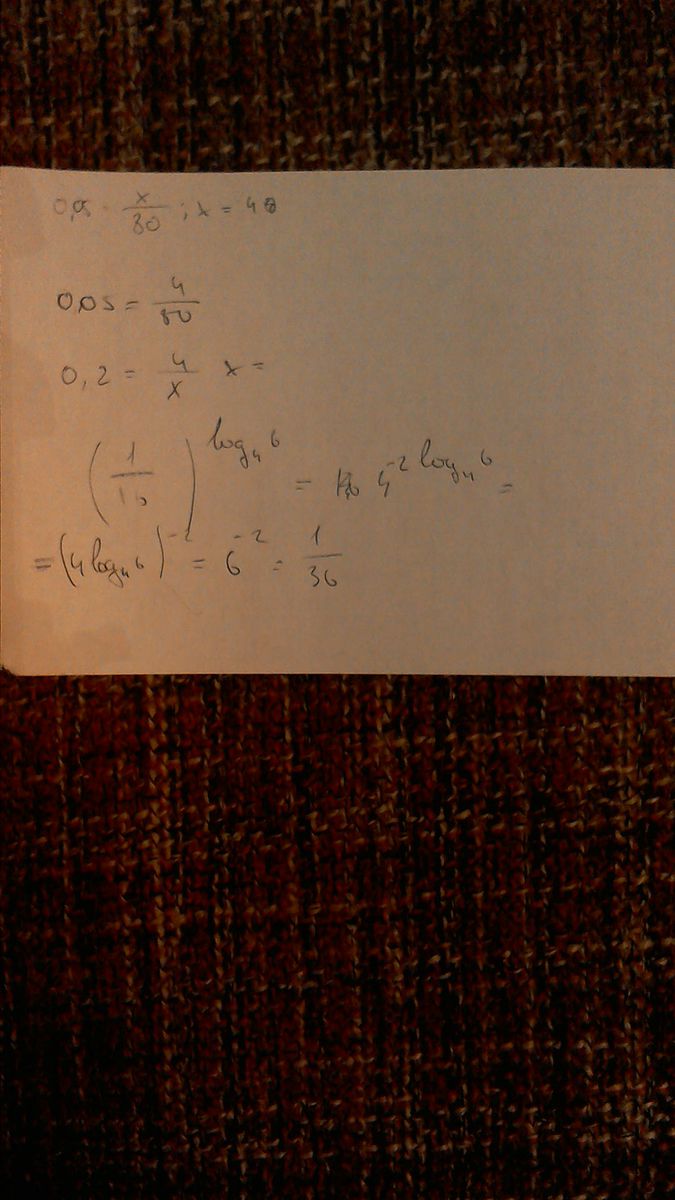 0,05 = x/80 ; x = 4
0,05 = 4/80
0,2 = 4/x x =
(1/16)^log₄6 = 4^-2 log₄6 =
= (4^log₄6)^-2 = 6^-2 = 1/36